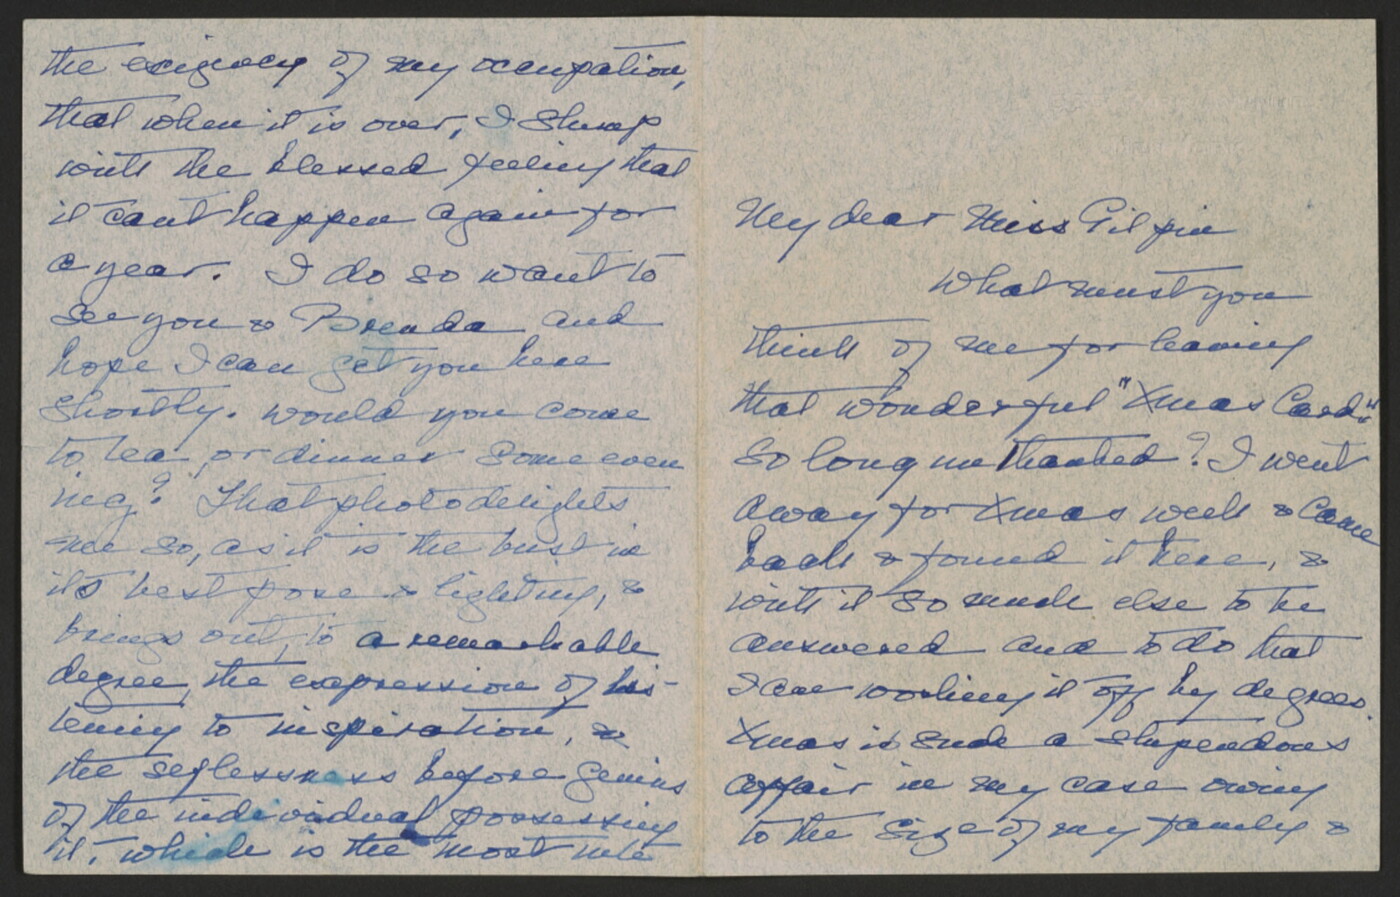 My dear Miss Gilpin
What must you
think of me for leaving
that wonderful "Xmas Card"
so long unthanked? I went
away for Xmas week & came
back & found it here, &
with it so much else to be
answered and to do that
I am working it off by degrees.
Xmas is such a stupendous
affair in my case owing
to the size of my family &
the exigency of my occupation,
that when it is over, I slump
with the blessed feeling that
it can't happen again for
a year. I do so want to
see you & Brenda and
hope I can get you here
shortly. Would you come
to tea or dinner some even
ing? That photo delights
me so, as it is the bust in
its best pose & lighting, &
brings out, to a remarkable
degree, the expression of lis-
tening to inspiration, &
the selflessness before genius
of the individual possessing
it, which is the most inte